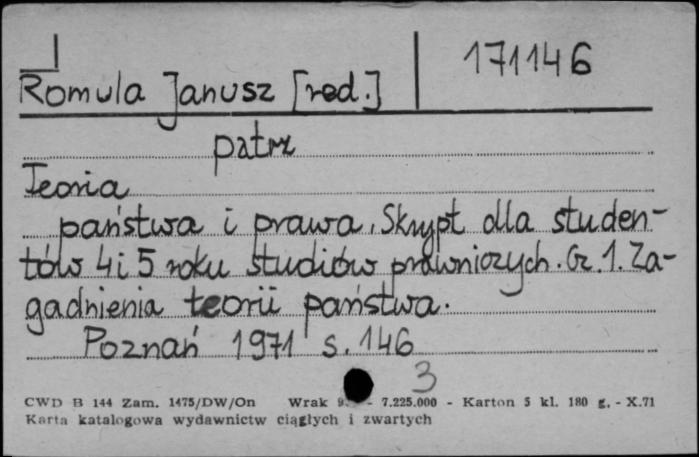 171146
Romula Janusz [red.]
patrz
Teoria
państwa i prawa. Skrypt dla studen-
tów 4 i 5 roku studiów prawniczych. Cz. 1. Za-
gadnienia teorii państwa.
Poznań 1971 s. 146
3
CWD B 144 Zam. 1475/DW/On Wrak - 7.225.000 - Karton 5 kl. 180 g. - X.71
Karta katalogowa wydawnictw ciągłych i zwartych